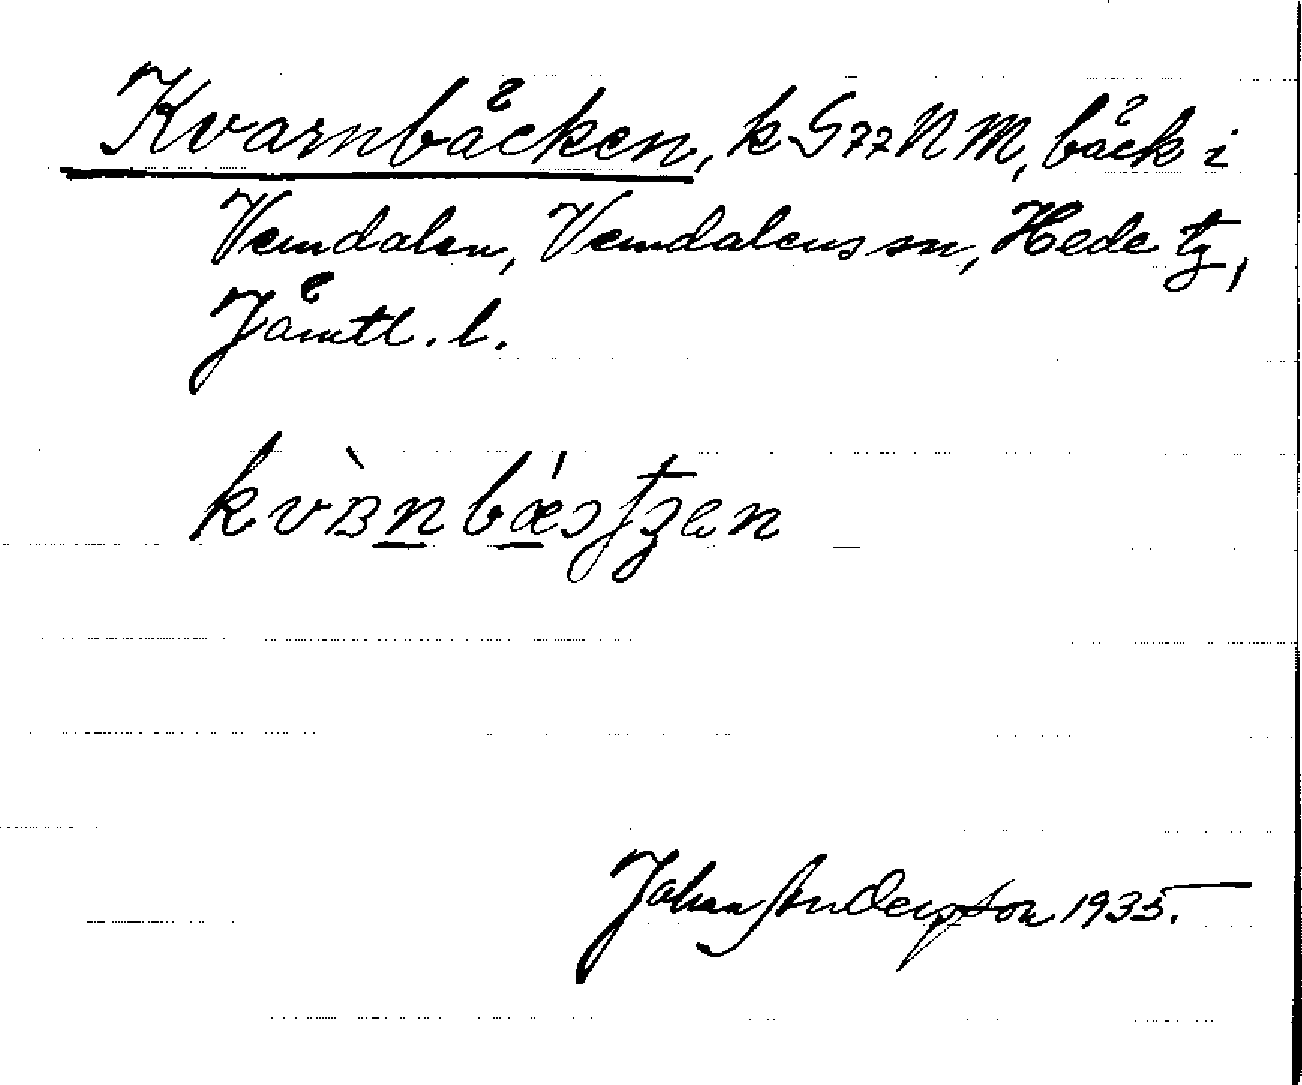 Kvarnbäcken, k G77NM, bäck i
Vemdalen, Vemdalens sn, Hede tg,
Jämtl. l.
Johan Anderson 1935.